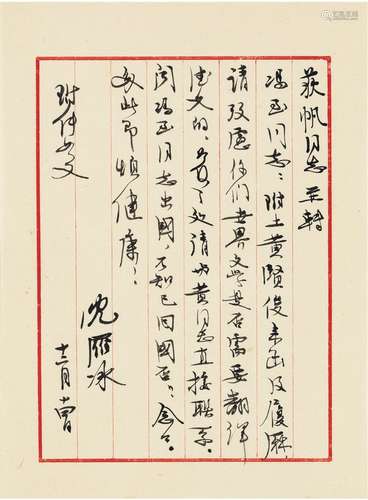 荻帆同志 并转
冯至同志：附上黄賢俊来函及履歷，
请攷慮你们世界文学是否需要翻译
德文的。请与黄同志直接联系。
闻冯至同志出國，不知已回國否？念念。
匆此即颂健康！
沈雁冰
十二月十四日
附件如文